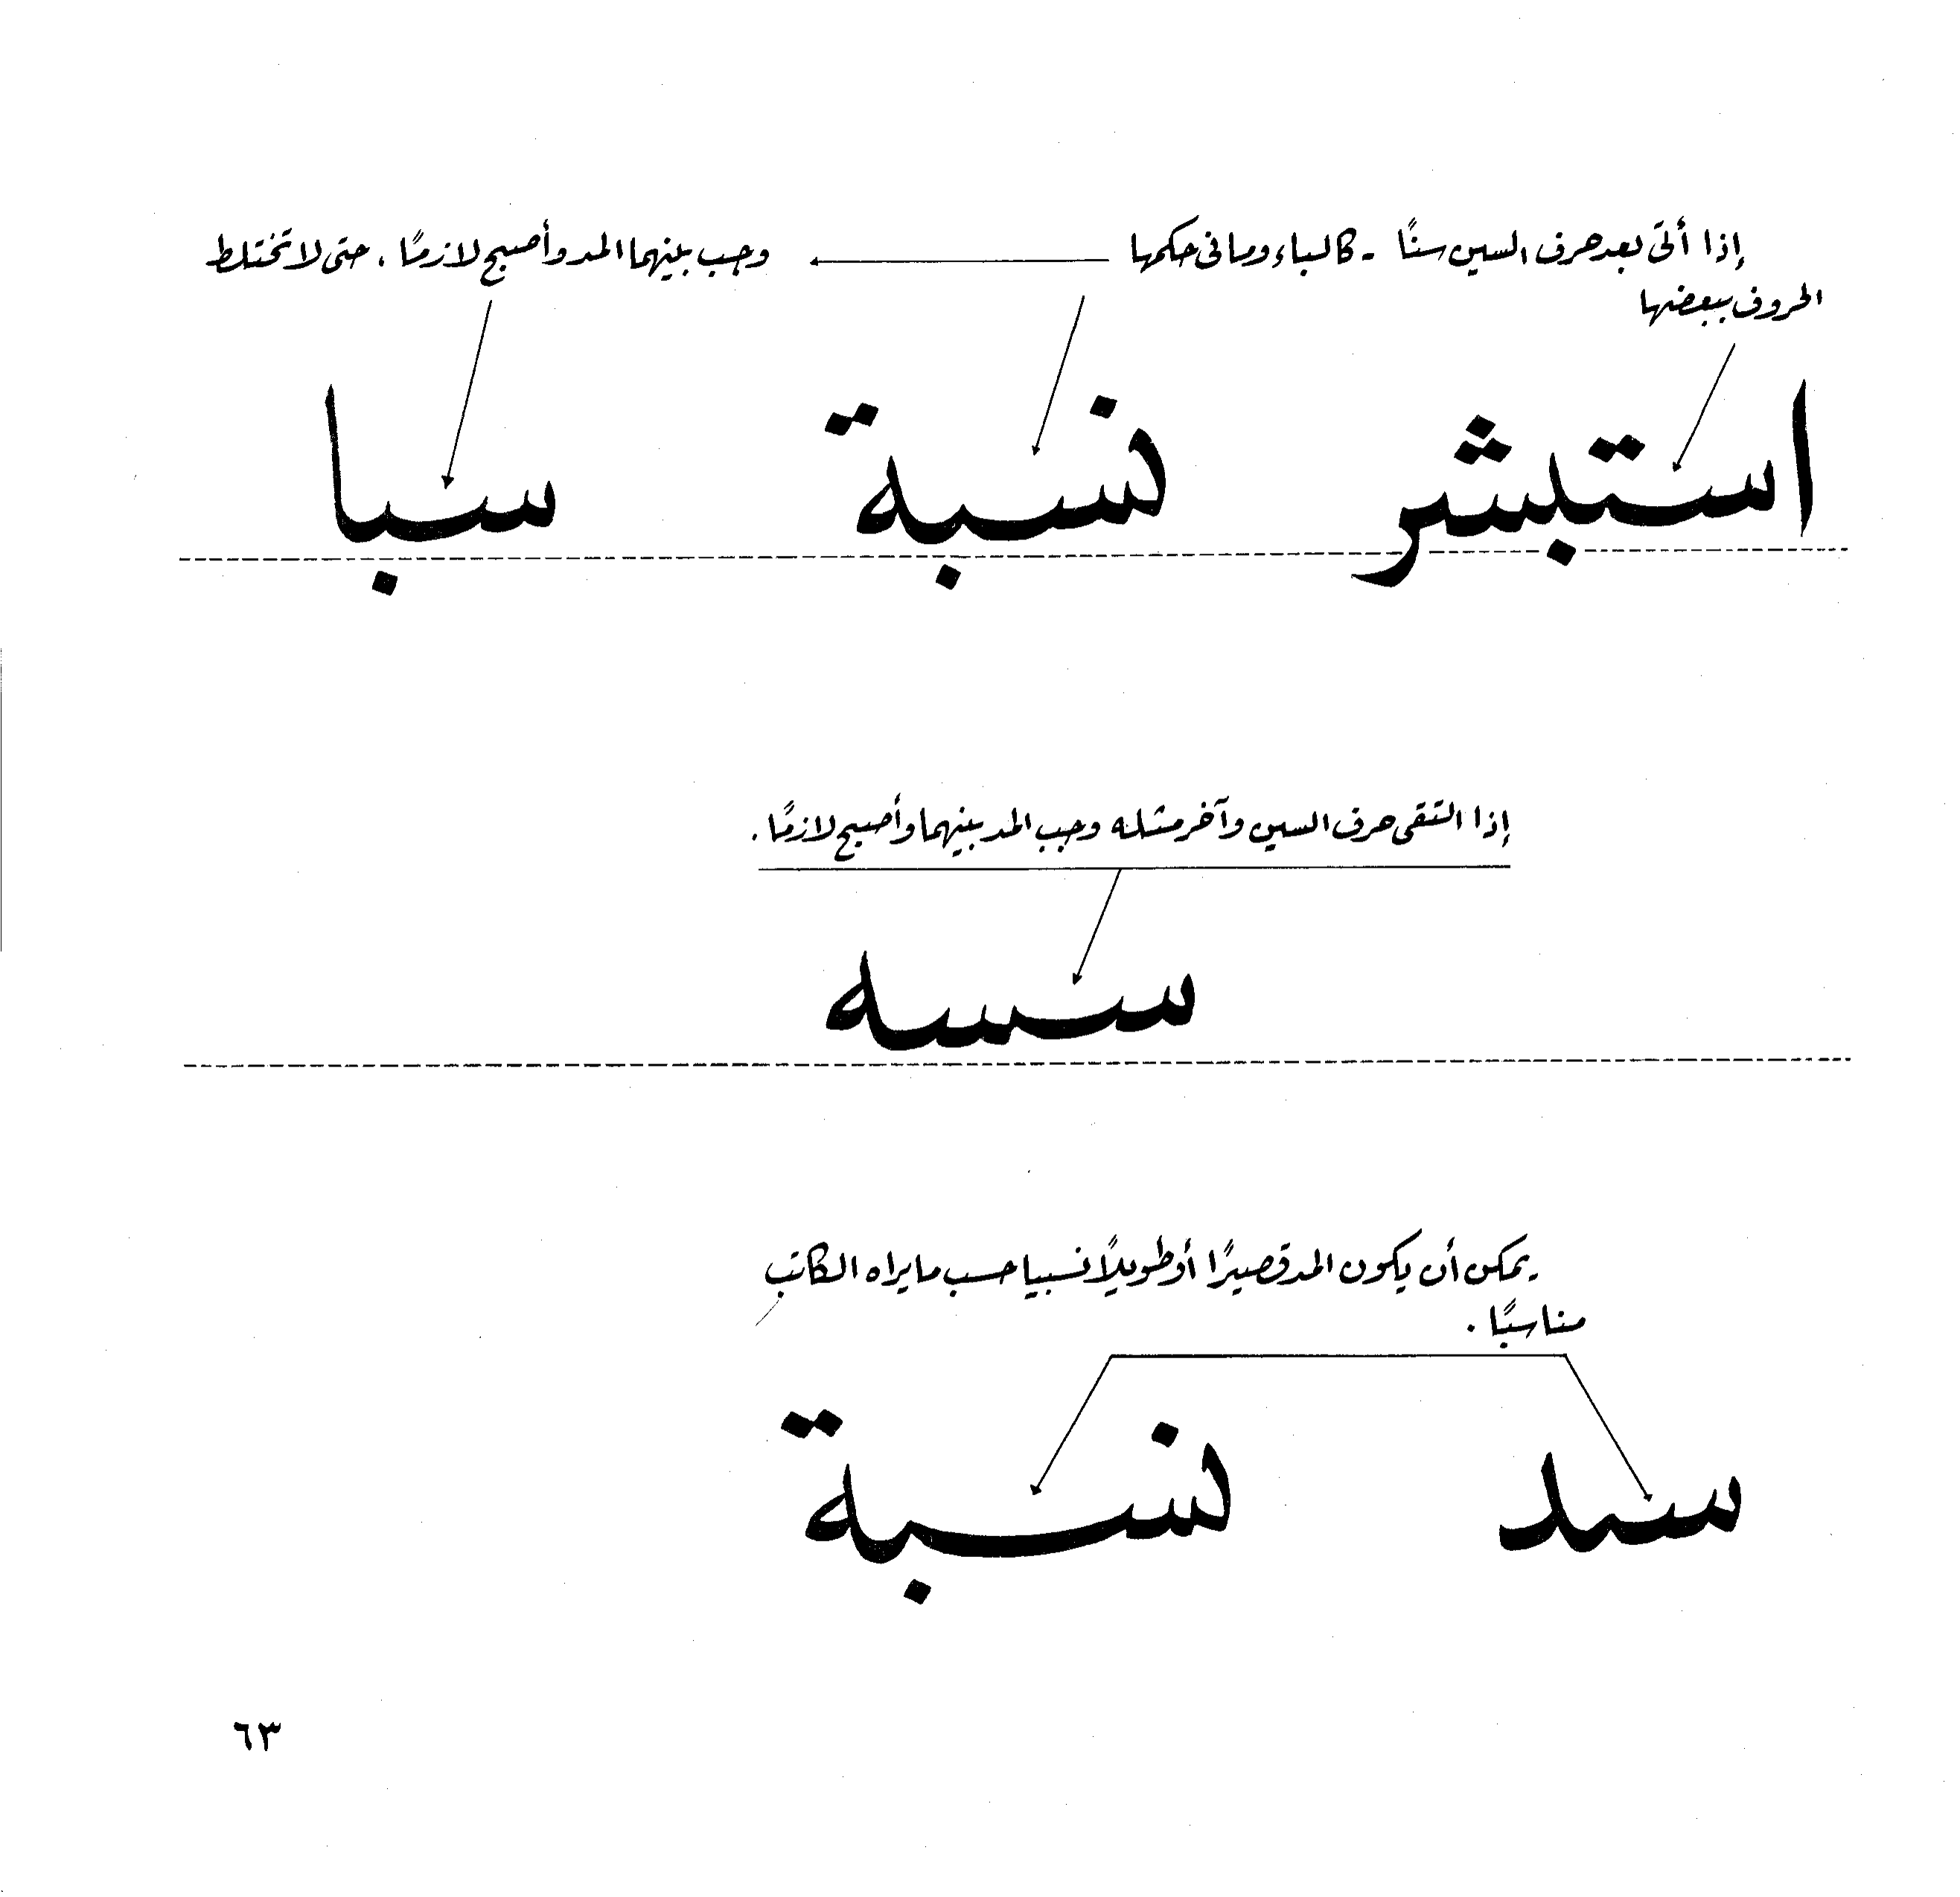 إذا أتى بعد حرف السين سنًا - كالباء وما فى حكمها وجب بينهما المد وأصبح لازمًا، حتى لا تختلط
الحروف ببعضها
استبشر نسبة سبا
إذا التقى حرف السين وآخر مثله وجب المد بينهما وأصبح لازمًا.
سسه
يمكن أن يكون المد قصيرًا أو طويلًا نسبيا حسب ما يراه الكاتب
مناسبًا.
سد نسبة
٦٣